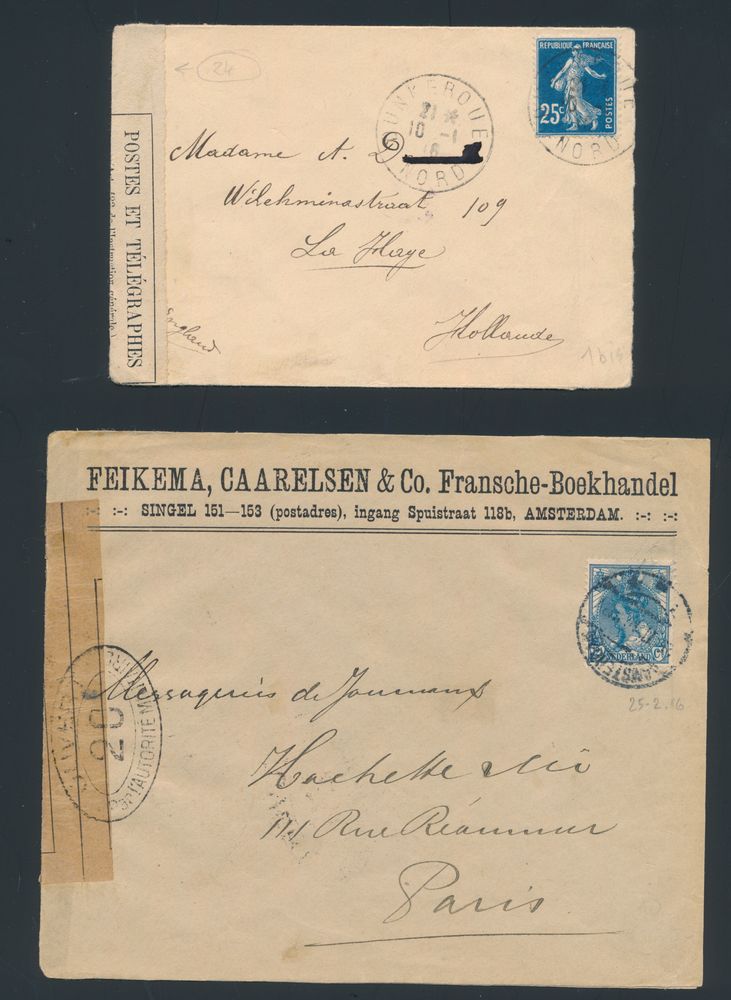 24
REPUBLIQUE FRANÇAISE
25c
POSTES
DUNKERQUE
21
10 -1
16
NORD
NORD
POSTES ET TÉLÉGRAPHES
Madame A. D
Wilehminastraat 109
La Haye
Hollande
England
1 bis
FEIKEMA, CAARELSEN & Co. Fransche-Boekhandel
:-: :-: SINGEL 151—153 (postadres), ingang Spuistraat 118b, AMSTERDAM. :-: :-:
NEDERLAND
25-2.16
OUVERT
PAR L'AUTORITÉ
Messageries de Journaux
Hachette & Cie
111 Rue Réaumur
Paris